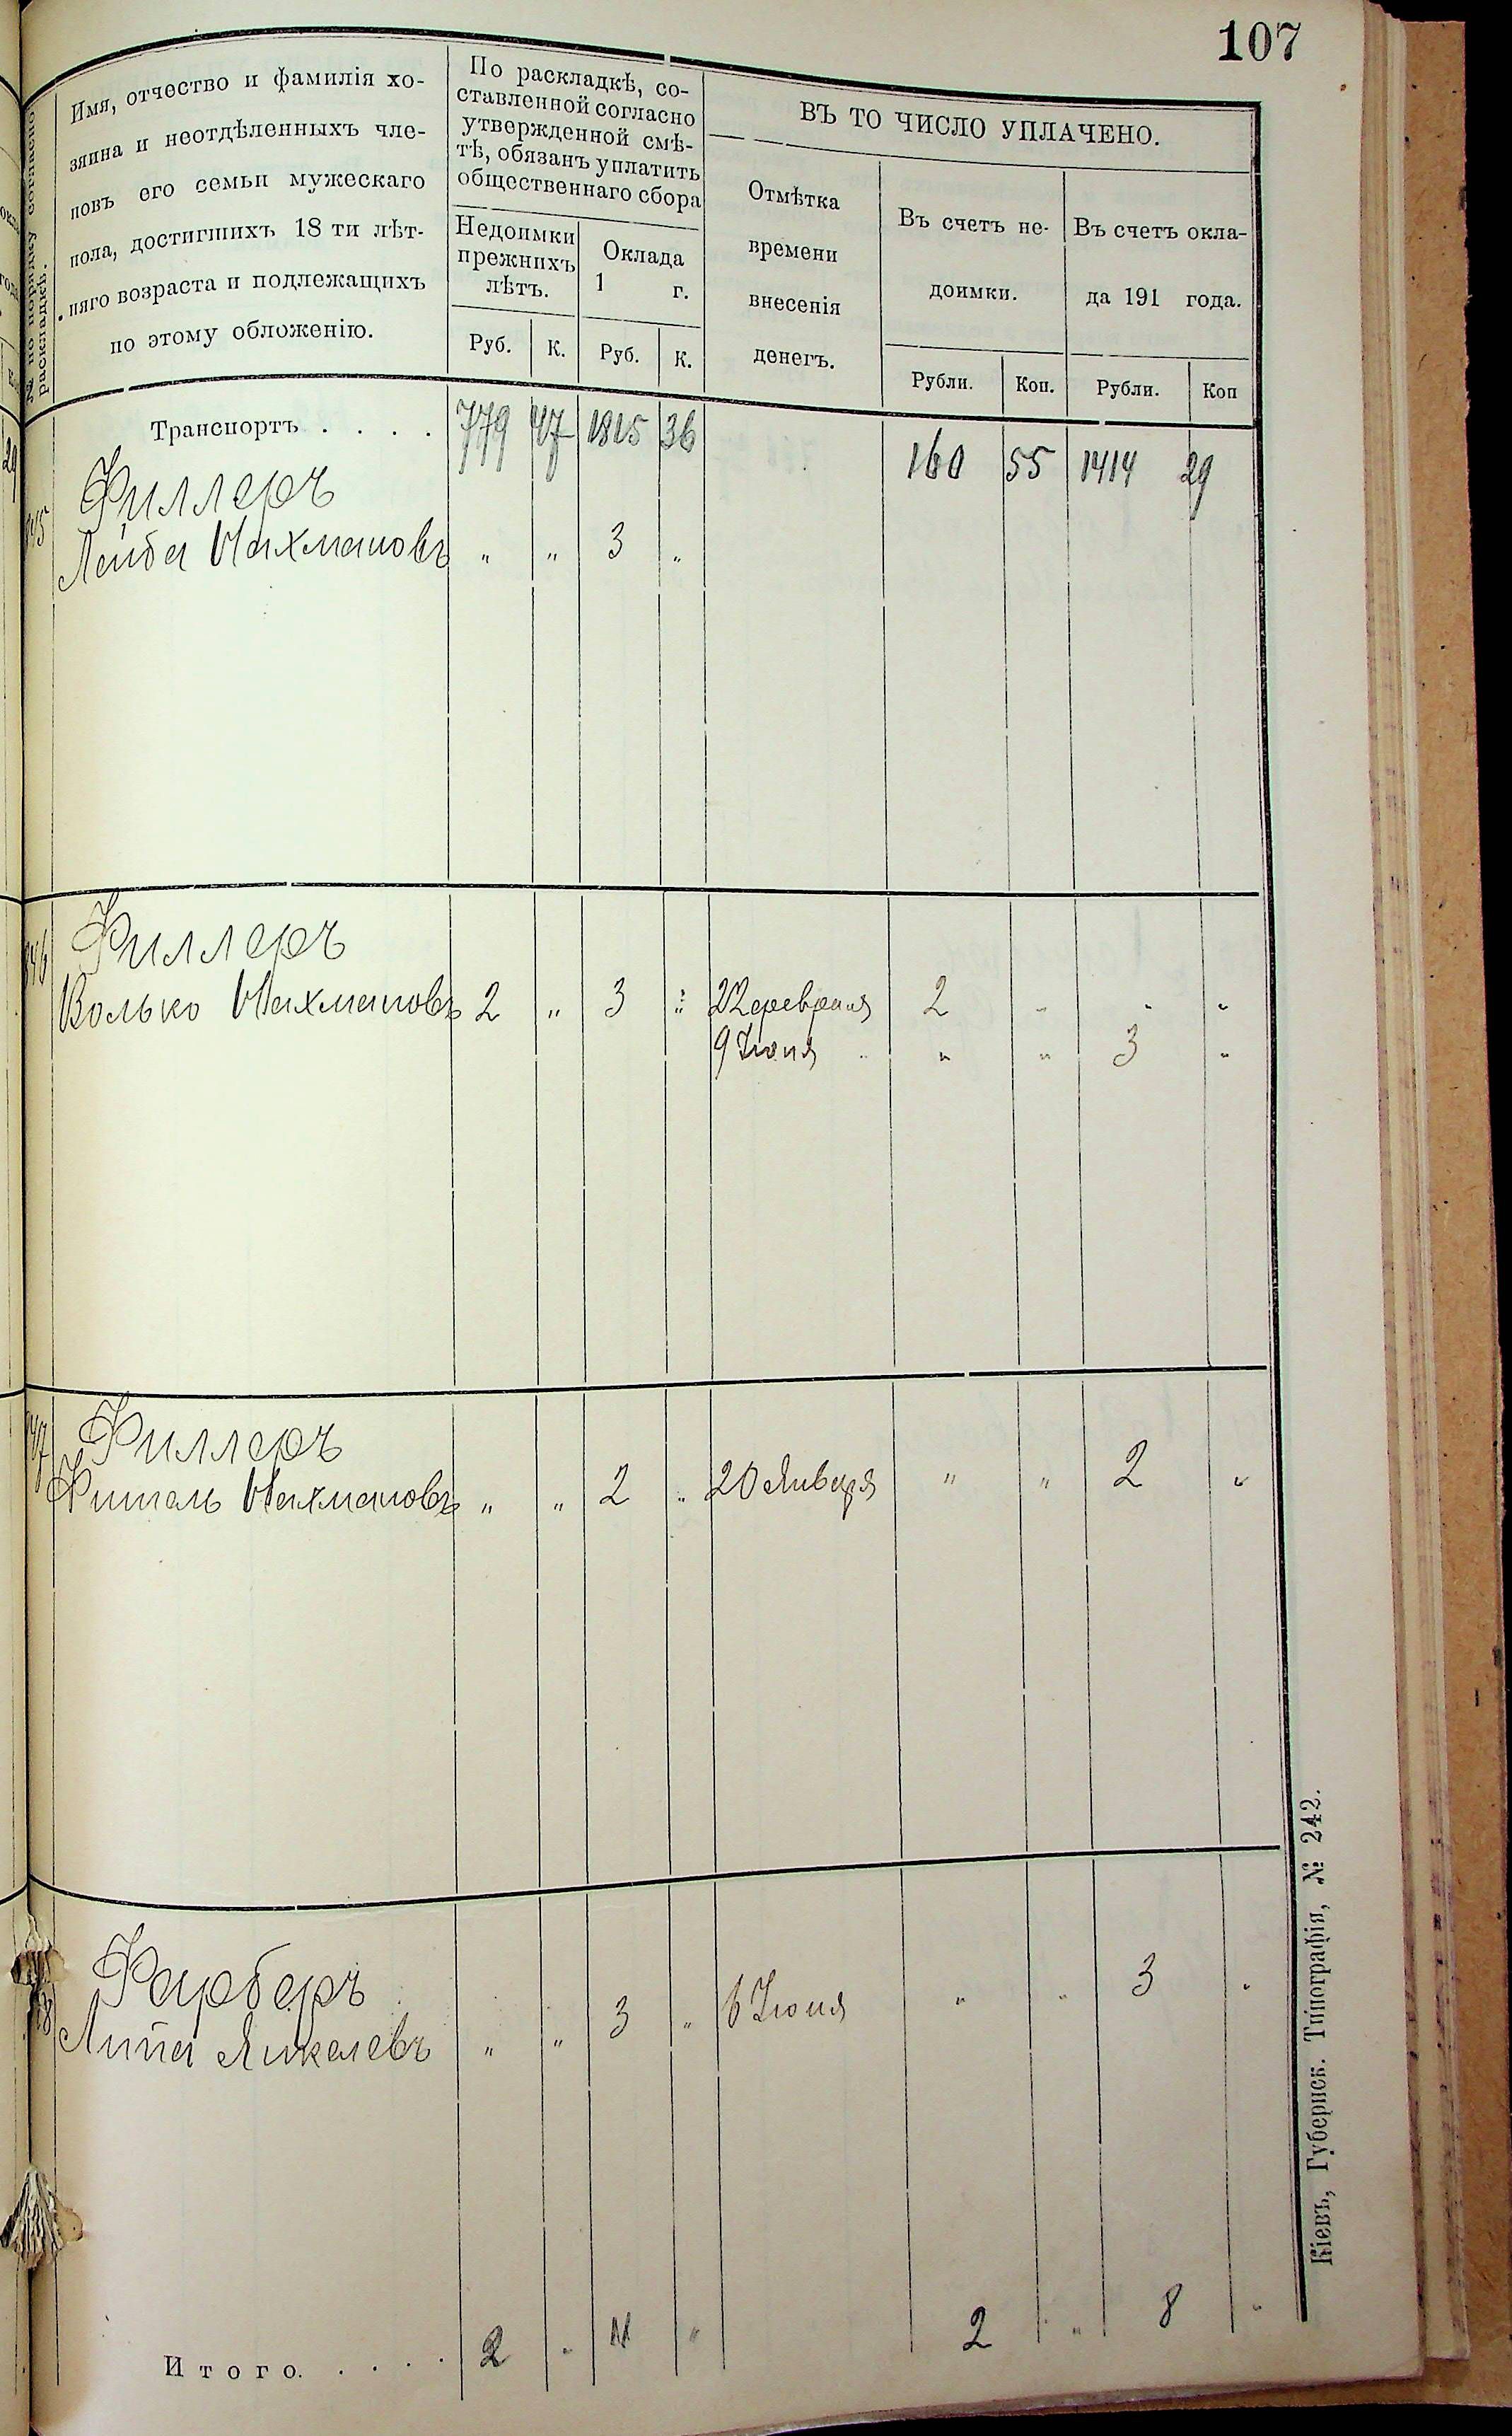 107
№ по порядку согласно раскладкѣ.
Имя, отчество и фамилія хо-
зяина и неотдѣленныхъ чле-
новъ его семьи мужескаго
пола, достигшихъ 18 ти лѣт-
няго возраста и подлежащихъ
по этому обложенію.
По раскладкѣ, со-
ставленной согласно
утвержденной смѣ-
тѣ, обязанъ уплатить
общественнаго сбора
Недоимки
прежнихъ
лѣтъ.
Оклада
1 г.
Руб. К. Руб. К.
ВЪ ТО ЧИСЛО УПЛАЧЕНО.
Отмѣтка
времени
внесенія
денегъ.
Въ счетъ не-
доимки.
Въ счетъ окла-
да 191 года.
Рубли. Коп. Рубли. Коп
Транспортъ . . . . 779 47 1815 36 160 55 1414 29
Филлеръ
Лейба Нахмановъ " " 3 "
Филлеръ
Волько Нахмановъ 2 " 3 " 22 февраля 2 " " "
9 Іюня " " 3 "
Филлеръ
Фишель Нахмановъ " " 2 " 20 Января " " 2 "
Фарберъ
Липа Янкелевъ " " 3 " 6 Іюня " " 3 "
Итого. . . . . 2 " 11 " 2 " 8 "
Кіевъ, Губернск. Типографія, № 242.